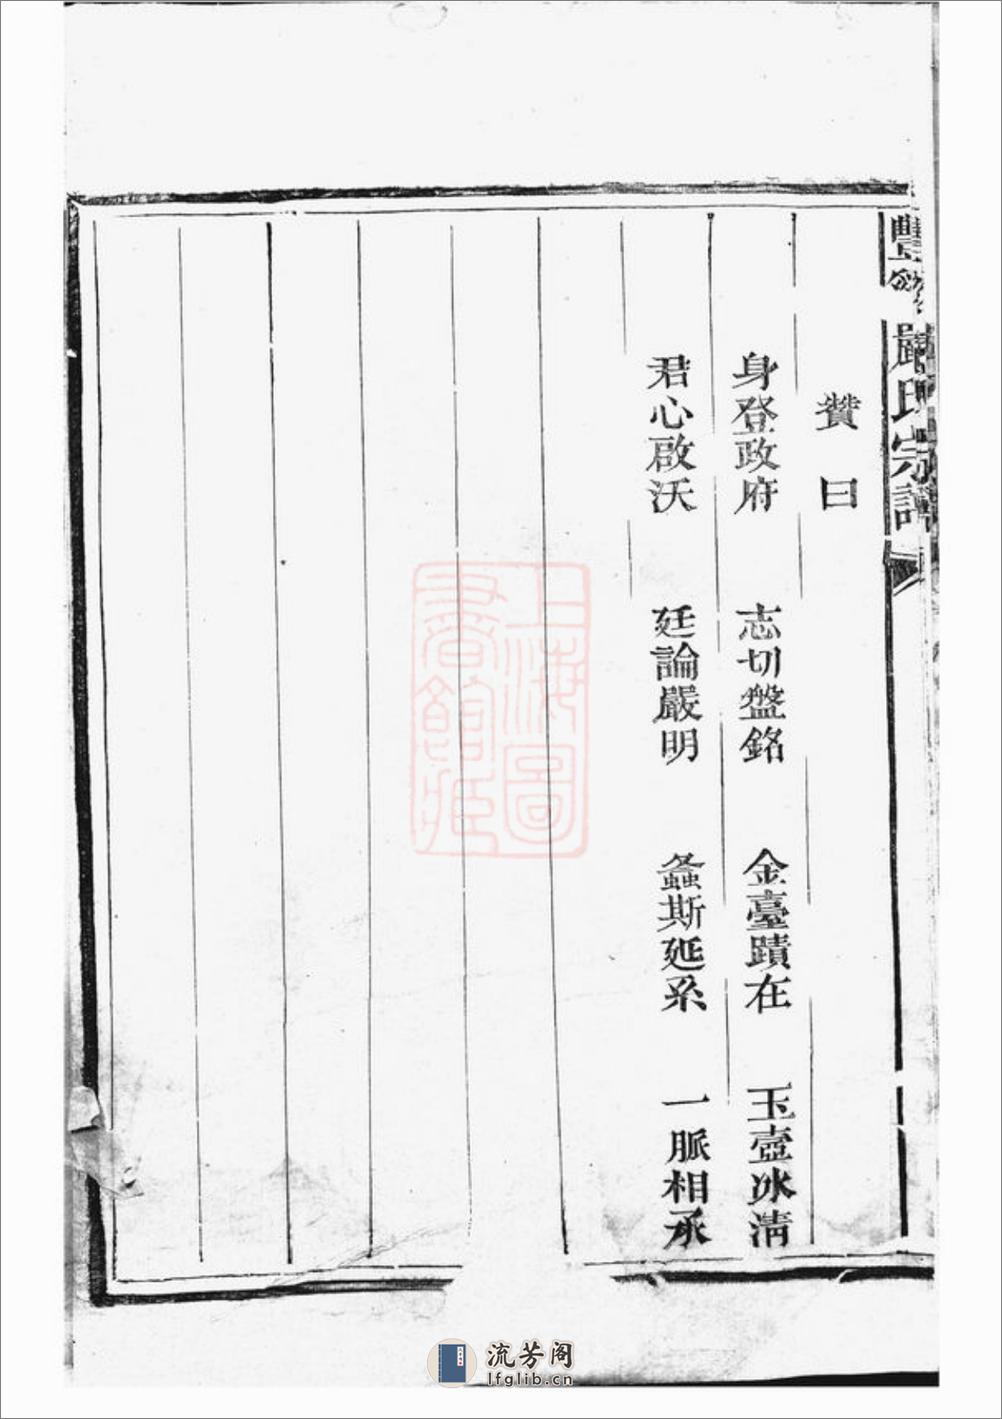 豐
嚴氏宗譜
贊曰
身登政府 志切盤銘 金臺蹟在 玉壺冰清
君心啟沃 廷論嚴明 螽斯延系 一脈相承
上海圖書館藏
流芳阁
lfglib.cn